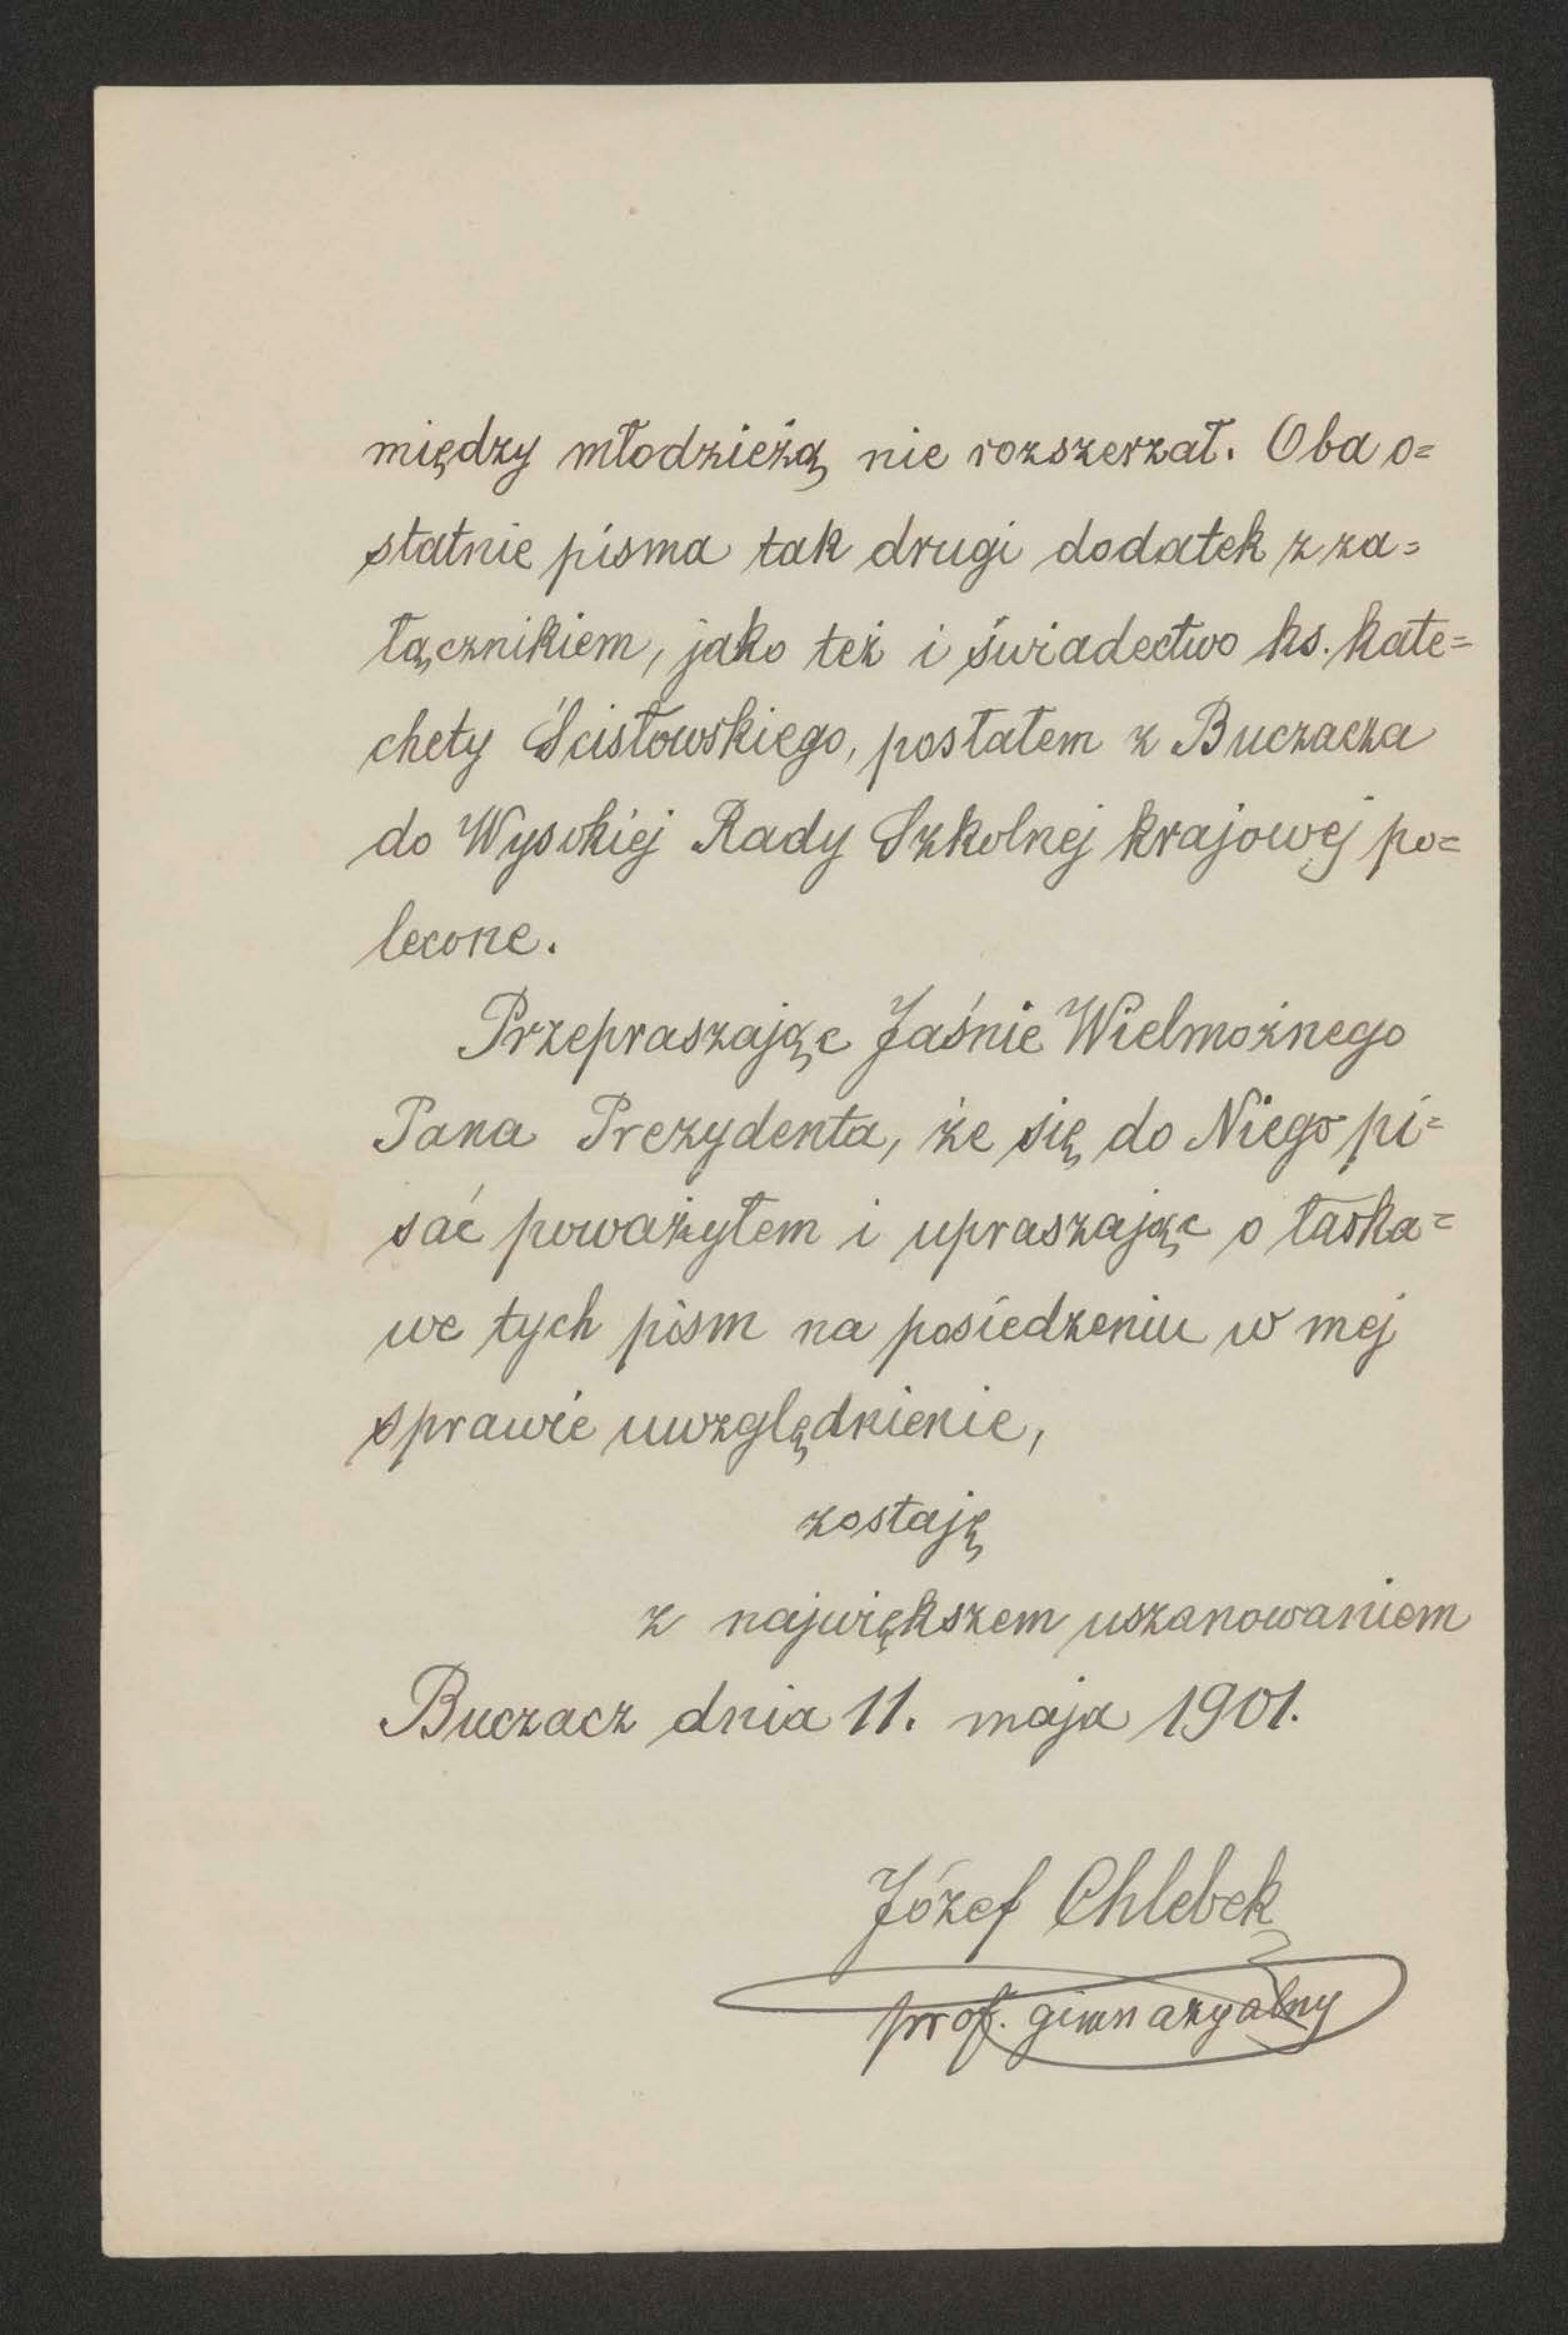 między młodzieżą nie rozszerzał. Oba o=
statnie pisma tak drugi dodatek z za=
łącznikiem, jako też i świadectwo ks. kate=
chety Ścisłowskiego, posłałem z Buczacza
do Wysokiej Rady Szkolnej krajowej po=
lecone.
Przepraszając Jaśnie Wielmożnego
Pana Prezydenta, że się do Niego pi=
sać poważyłem i upraszając o łaska=
we tych pism na posiedzeniu w mej
sprawie uwzględnienie,
zostaję
z największem uszanowaniem
Buczacz dnia 11. maja 1901.
Józef Chlebek
prof. gimnazyalny